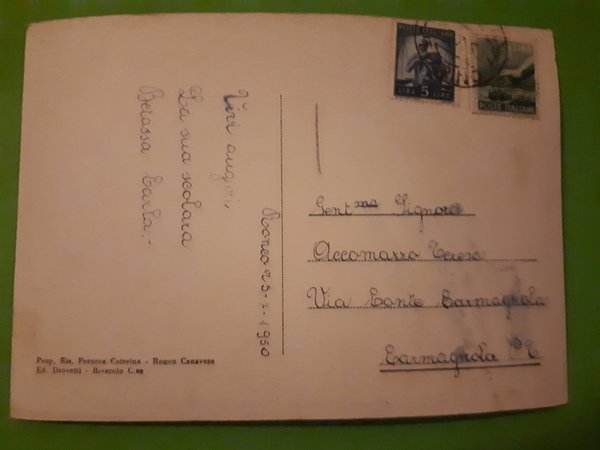 Vivi auguri.
La sua scolara
Berassa Carla.-
Ronco 25-7-1950
POSTE ITALIANE
LIRE 5 LIRE
POSTE ITALIANE
Gent ma Signora
Accomazzo Teresa
Via Conte Carmagnola
Carmagnola
Prop. Ris. Perucca Caterina - Ronco Canavese
Ed. Drovetti - Rivarolo C.se